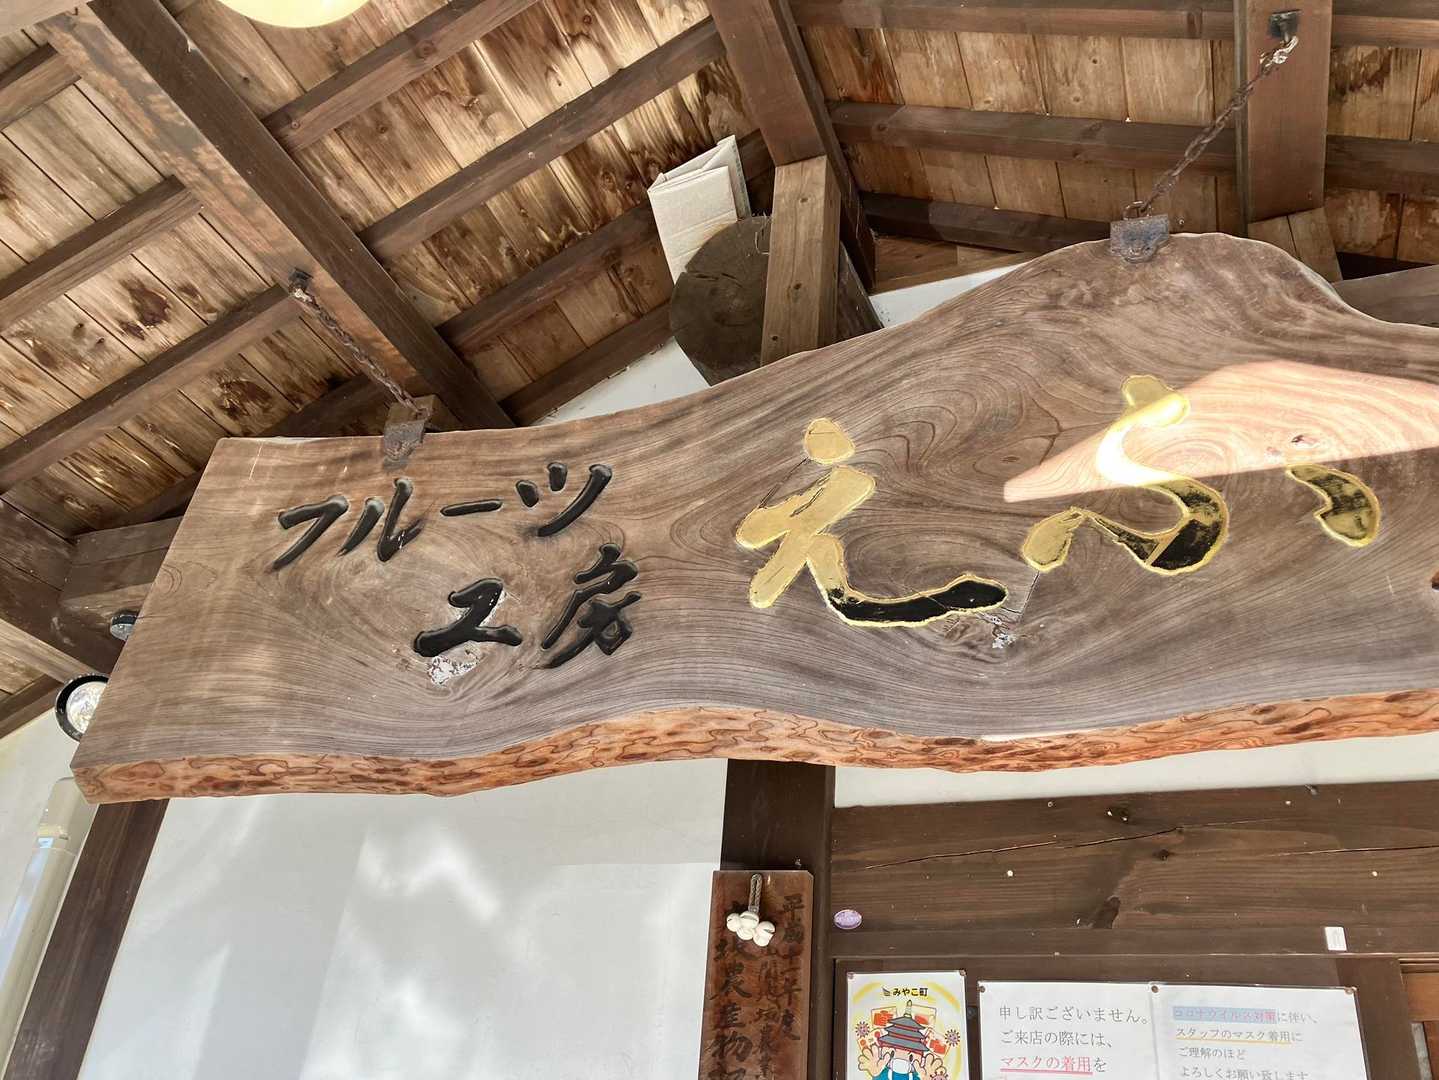 フルーツ
工房
えふ
みやこ町
申し訳ございません。
ご来店の際には、
マスクの着用を
コロナウイルス対策に伴い、
スタッフのマスク着用に
ご理解のほど
よろしくお願い致します